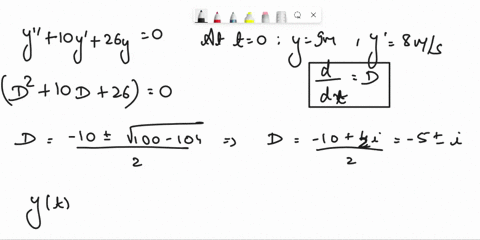 y'' + 10y' + 26y = 0    At t=0 : y=5m , y' = 8m/s
(D² + 10D + 26) = 0    d/dt = D
D = (-10 ± √(100 - 104))/2 => D = (-10 ± 2i)/2 = -5 ± i
y(t)